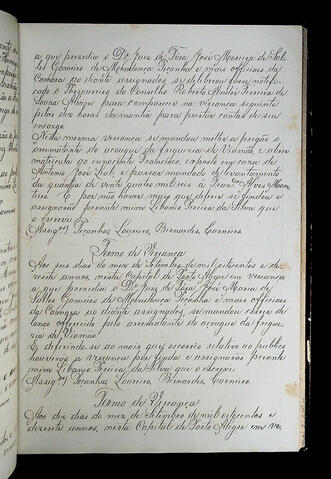 a que presidio o Dr. Juiz de Fóra José Moreira de Sal
les Gameiro de Mendonça Peçanha e mais officiaes da
Camara ao diante assignados, se deliberou fosse notifi
cado o Thezoureiro do Conselho Roberto André Pereira de
Souza Alvim para comparecer na vereança seguinte
pelas dez horas da manhã para prestar contas de seu
encargo.
Nesta mesma vereança se mandou metter a pregão o
arrematante do açougue da freguezia de Viamão e abrir
matricula ao innocente Francisco, exposto em caza de
Antonio José Leal, e passar mandado de levantamento
da quantia de vente quatro mil reis a Franco. Alves Mon
teiro. E por não haver mais que deferir se findou e
assignarão perante mim Libanio Pereira da Silva que
o escrevi.
(Assigos.) Peçanha, Loureiro, Bernardes, Carneiro.
Termo de Vereança
Aos seis dias do mez de Setembro de mil oitocentos e de
zeseis annos, nesta Capital de Porto Alegre em vereança
a que presidio o Dr. Juiz de Fóra José Maria de
Salles Gameiro de Mendonça Peçanha e mais officiaes
da Camara ao diante assignados, se mandou
lanço offerecido pelo arrematante do açougue da fregue
zia de Viamão.
E, deferindo-se ao mais que occorrêo relativo ao publico
houverão a vereança por finda e assignarão perante
mim Libanio Pereira da Silva que o escrevi.
(Assigos.) Peçanha, Loureiro, Bernardes, Carneiro.
Termo de Vereança
Aos dez dias do mez de Setembro de mil oitocentos e
dezeseis annos, nesta Capital de Porto Alegre em ve